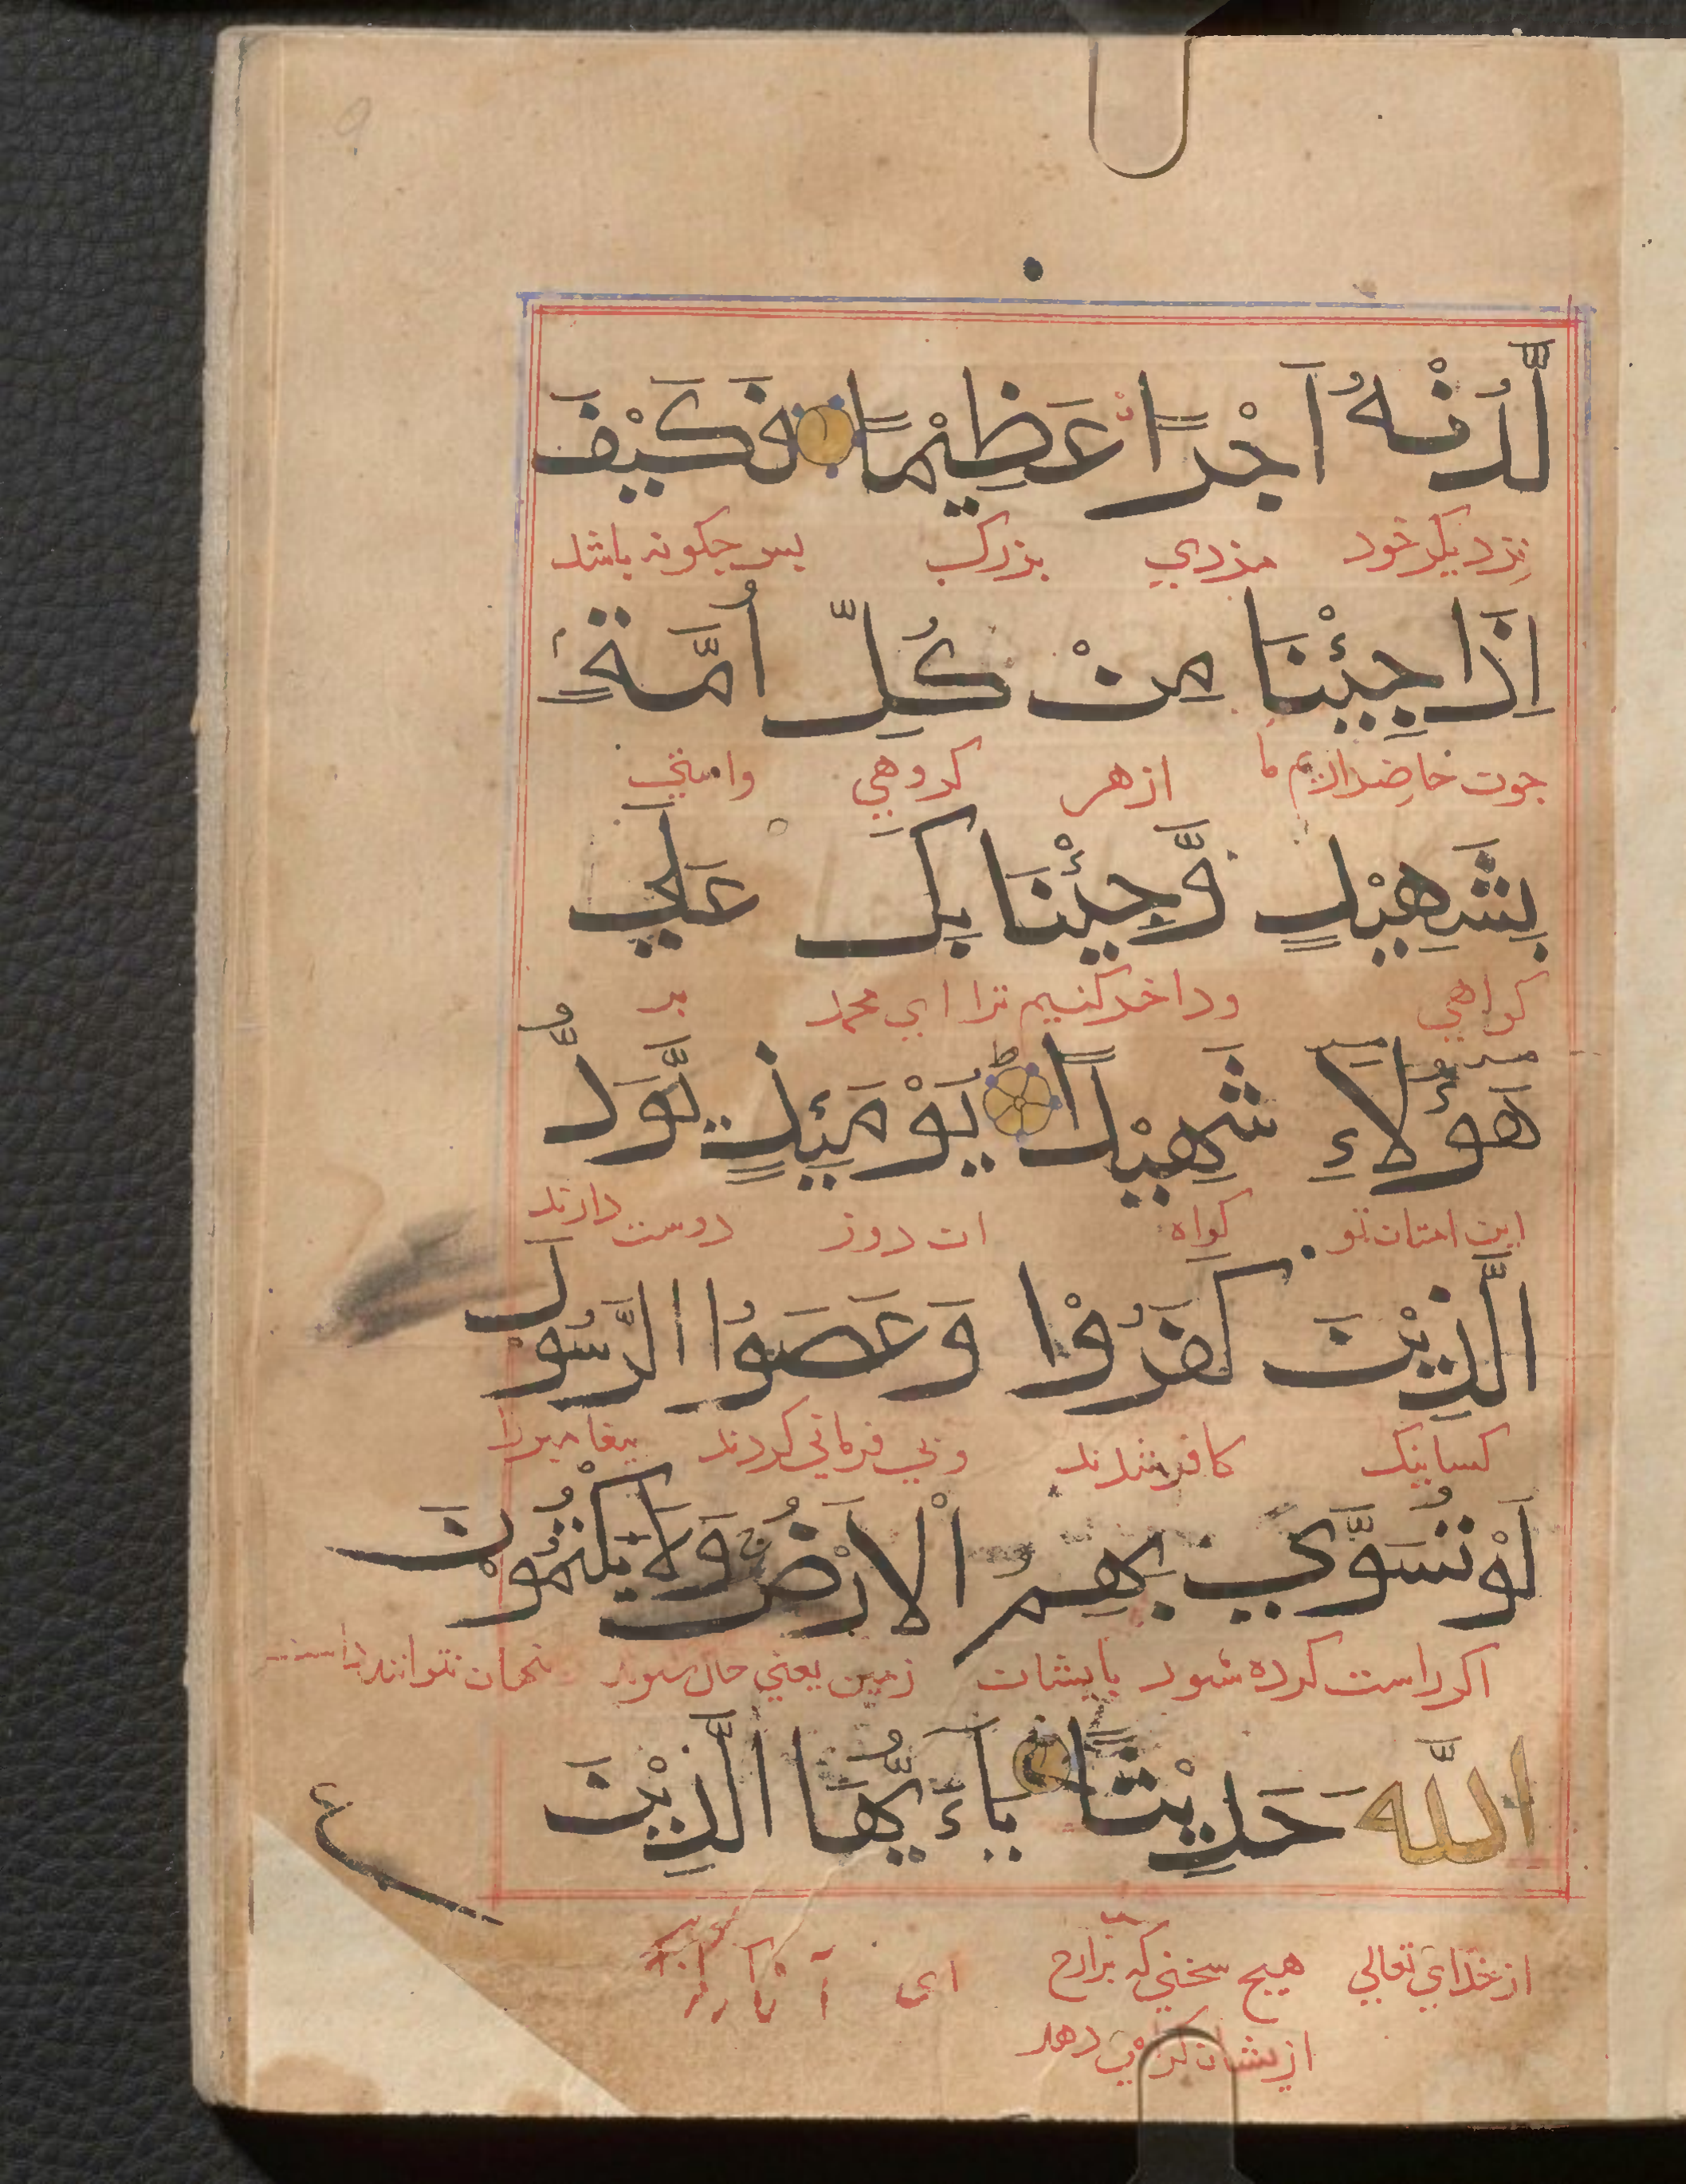 لَّدُنْهُ اَجْرًا عَظِيْمًا فَكَيْفَ
نزدیک خود مزدي بزرک بس جکونه باشد
اِذَا جِيْئْنَا مِنْ كُلِّ اُمَّةٍ
جون حاضر اریم ما از هر کروهي وامتي
بِشَهِيْدٍ وَّجِيْئْنَا بِكَ عَلَي
کواهي وداخر کنیم ترا اي محمد بر
هَؤُلَاءِ شَهِيْدًا يَوْمَئِذٍ يَّوَدُّ
این امتان تو کواه ان روز دوست دارند
الَّذِيْنَ كَفَرُوْا وَعَصَوُا الرَّسُوْلَ
کسانیک کافر شدند وبي فرماني کردند بیغامبر را
لَوْ تُسَوَّي بِهِمُ الْاَرْضُ وَلَا يَكْتُمُوْنَ
اکر راست کرده شود بایشان زمین یعني خاک شوند نهان نتوانند داشت
اللَّهَ حَدِيْثًا يَاءَيُّهَا الَّذِيْنَ
از خداي تعالي هیج سخني که اي
ازیشان کواهي دهد